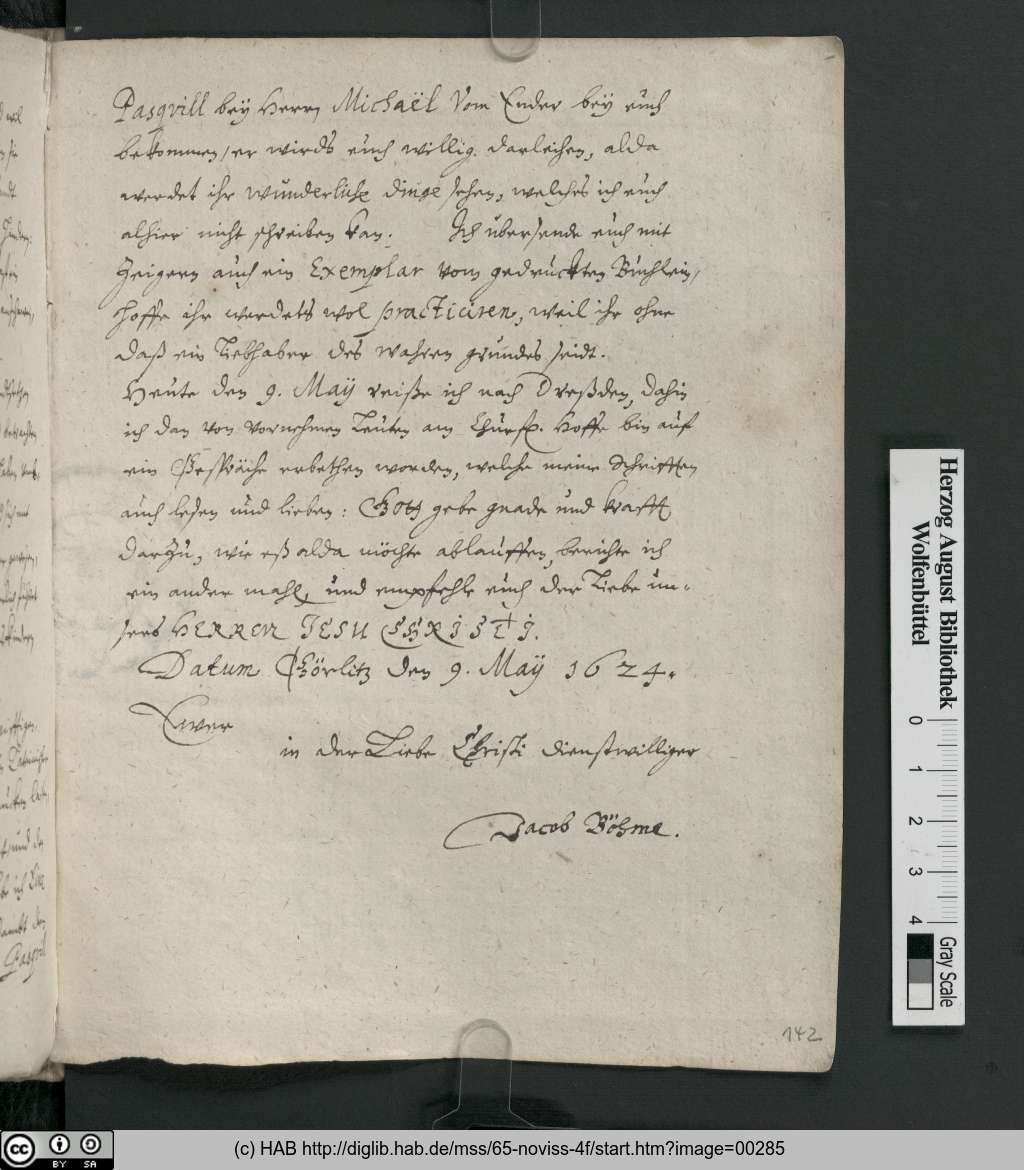 Pasqvill bey Herrn Michaël Vom Ender bey euch
bekommen, er wirds euch willig darleihen, alda
werdet ihr wunderliche dinge sehen, welches ich euch
alhier nicht schreiben kan. Ich übersende euch mit
Zeigern auch ein Exemplar vom gedruckten Büchlein,
hoffe ihr werdets wol practiciren, weil ihr ohne
daß ein Liebhaber des wahren grundes seidt.
Heute den 9. Maÿ reiße ich nach Dreßden, dahin
ich dan von vornehmen Leuten am Churf. Hoffe bin auf
ein Gespräche erbethen worden, welche meine Schrifften
auch lesen und lieben: Gott gebe gnade und krafft
darzu, wie eß alda möchte ablauffen, berichte ich
ein ander mahl, und empfehle euch der Liebe un-
sers HERREN IESU CHRISTI.
Datum Görlitz den 9. Maÿ 1624.
Ewer
in der Liebe Christi dienstwilliger
Jacob Böhme.
142
Herzog August Bibliothek
Wolfenbüttel
0 1 2 3 4
Gray Scale
BY SA
(c) HAB http://diglib.hab.de/mss/65-noviss-4f/start.htm?image=00285